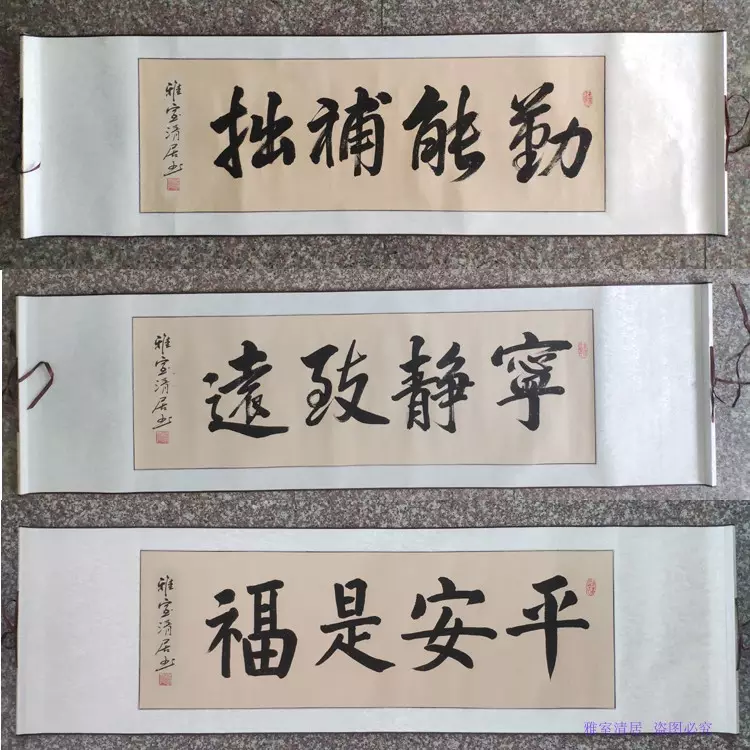 勤能補拙
雅室清居书
寧静致遠
雅室清居书
平安是福
雅室清居书
雅室清居 盗图必究